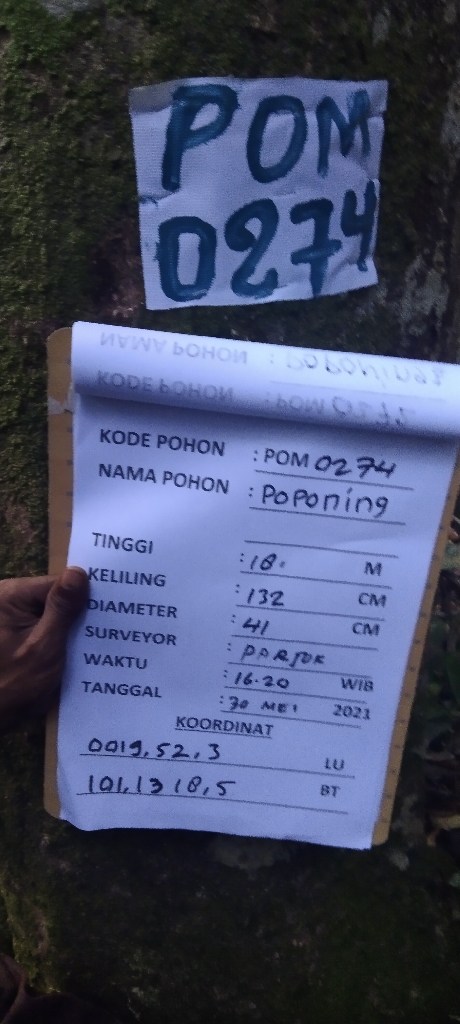 POM
0274
KODE POHON : POM 0274
NAMA POHON : POPONING
TINGGI : 18. M
KELILING : 132 CM
DIAMETER : 41 CM
SURVEYOR : PARJOK
WAKTU : 16.20 WIB
TANGGAL : 30 MEI 2021
KOORDINAT
0019,52,3 LU
101,13 18,5 BT